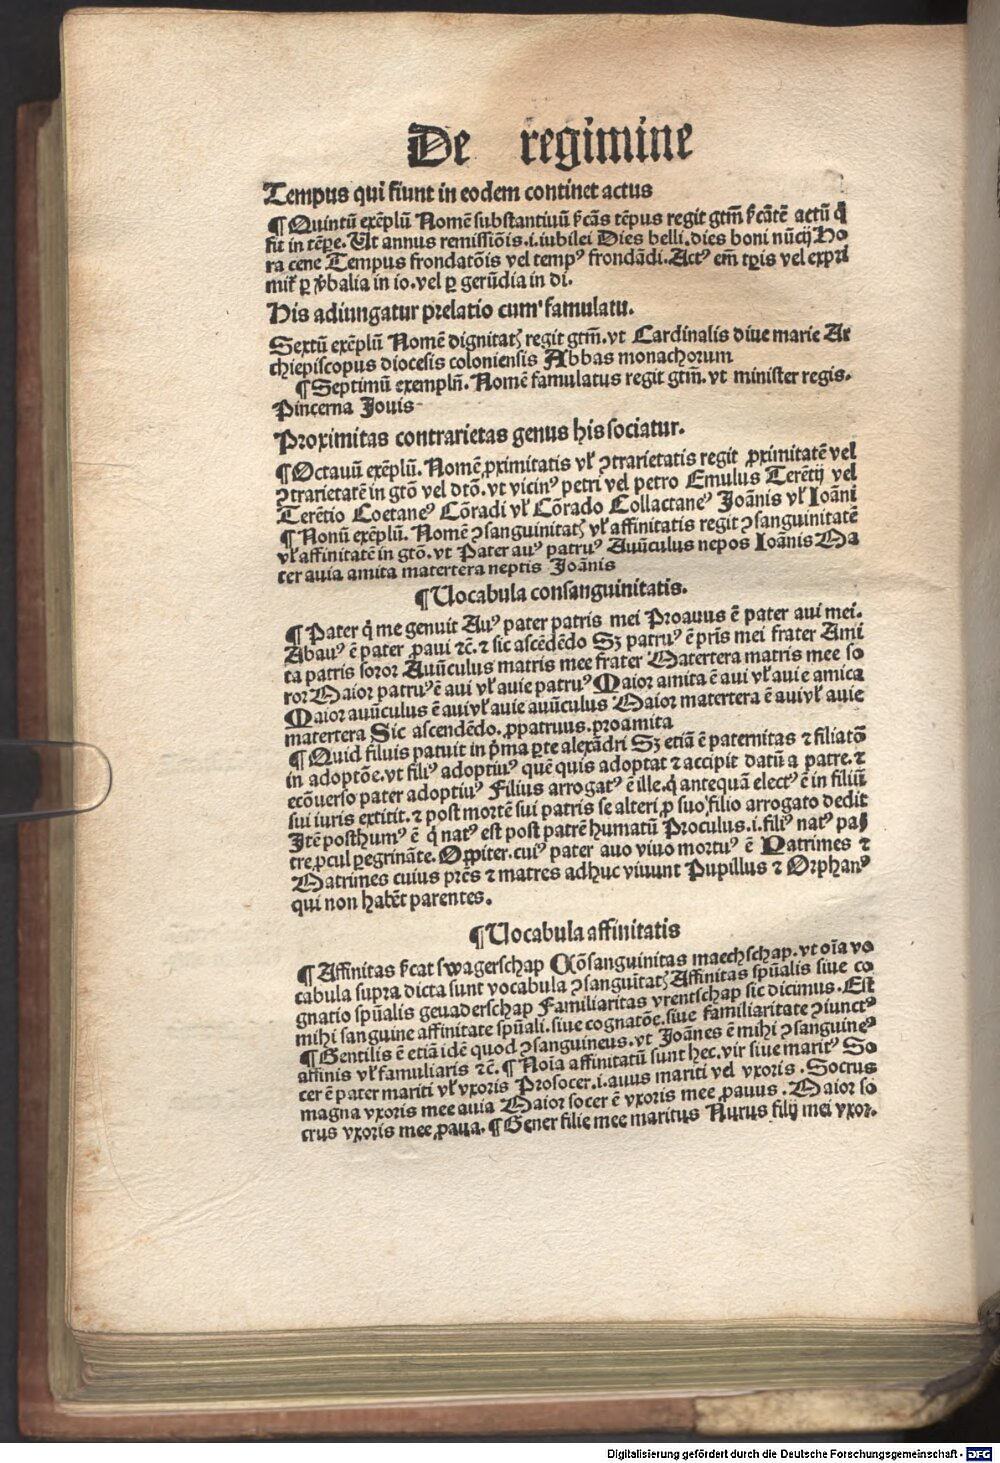 De regimine
Tempus qui fiunt in eodem continet actus
¶ Quintũ exẽplũ Nomẽ substantiuũ ſ̃cãs tẽpus regit gtm̃ ſ̃cãtẽ actũ q̃
fit in tẽꝑe. Ut annus remissiõis .i. iubilei Dies belli. dies boni nũcij Ho
ra cene Tempus frondatõis vel tempꝰ frondãdi. Actꝰ em̃ tꝑis vel expri
mit̃ ꝑ ṽbalia in io. vel ꝑ gerũdia in di.
His adiungatur prelatio cum famulatu.
Sextũ exẽplũ Nomẽ dignitatꝭ regit gtm̃. vt Cardinalis diue marie Ar
chiepiscopus diocesis coloniensis Abbas monachorum
¶ Septimũ exemplũ. Nomẽ famulatus regit gtm̃. vt minister regis.
Pincerna Iouis
Proximitas contrarietas genus his sociatur.
¶ Octauũ exẽplũ. Nomẽ ꝓximitatis vl̃ ꝯtrarietatis regit ꝓximitatẽ vel
ꝯtrarietatẽ in gtõ vel dtõ. vt vicinꝰ petri vel petro Emulus Terẽtij vel
Terẽtio Coetaneꝰ Cõradi vl̃ Cõrado Collactaneꝰ Joãnis vl̃ Ioãni
¶ Nonũ exẽplũ. Nomẽ ꝯsanguinitatꝭ vl̃ affinitatis regit ꝯsanguinitatẽ
vl̃ affinitatẽ in gtõ. vt Pater auꝰ patruꝰ Auũculus nepos Ioãnis Ma
ter auia amita matertera neptis Joãnis
¶ Vocabula consanguinitatis.
¶ Pater q̃ me genuit Auꝰ pater patris mei Proauus ẽ pater aui mei.
Abauꝰ ẽ pater ꝓaui ⁊c̃. ⁊ sic ascẽdẽdo Sꝫ patruꝰ ẽ pr̃is mei frater Ami
ta patris soror Auũculus matris mee frater Matertera matris mee so
ror Maior patruꝰ ẽ aui vl̃ auie patruꝰ Maior amita ẽ aui vl̃ auie amica
Maior auũculus ẽ aui vl̃ auie auũculus Maior matertera ẽ aui vl̃ auie
matertera Sic ascendẽdo. ꝓpatruus. proamita
¶ Quid filuis patuit in p̃ma ꝑte alexãdri Sꝫ etiã ẽ paternitas ⁊ filiatõ
in adoptõe. vt filiꝰ adoptiuꝰ quẽ quis adoptat ⁊ accipit datũ a patre. ⁊
ecõuerso pater adoptiuꝰ Filius arrogatꝰ ẽ ille. q̃ antequã electꝰ ẽ in filiũ
sui iuris extitit. ⁊ post mortẽ sui patris se alteri ꝓ suo filio arrogato dedit
Itẽ posthumꝰ ẽ q̃ natꝰ est post patrẽ humatũ Proculus .i. filiꝰ natꝰ pa
tre ꝓcul ꝑegrinãte. Opiter. cuiꝰ pater auo viuo mortuꝰ ẽ Patrimes ⁊
Matrimes cuius pr̃es ⁊ matres adhuc viuunt Pupillus ⁊ Orphanꝰ
qui non habẽt parentes.
¶ Vocabula affinitatis
¶ Affinitas ſ̃cat swagerschap Cõsanguinitas maechschap. vt oĩa vo
cabula supra dicta sunt vocabula ꝯsanguĩtatꝭ Affinitas spũalis siue co
gnatio spũalis geuaderschap Familiaritas vrentschap sic dicimus. Est
mihi sanguine affinitate spũali. siue cognatõe. siue familiaritate ꝯiunctꝰ
¶ Gentilis ẽ etiã idẽ quod ꝯsanguineus. vt Joãnes ẽ mihi ꝯsanguineꝰ
affinis vl̃ famuliaris ⁊c̃. ¶ Noĩa affinitatũ sunt hec. vir siue maritꝰ So
cer ẽ pater mariti vl̃ vxoris Prosocer .i. auus mariti vel vxoris. Socrus
magna vxoris mee auia Maior socer ẽ vxoris mee ꝓauus. Maior so
crus vxoris mee ꝓaua. ¶ Gener filie mee maritus Nurus filij mei vxor.
Digitalisierung gefördert durch die Deutsche Forschungsgemeinschaft - DFG